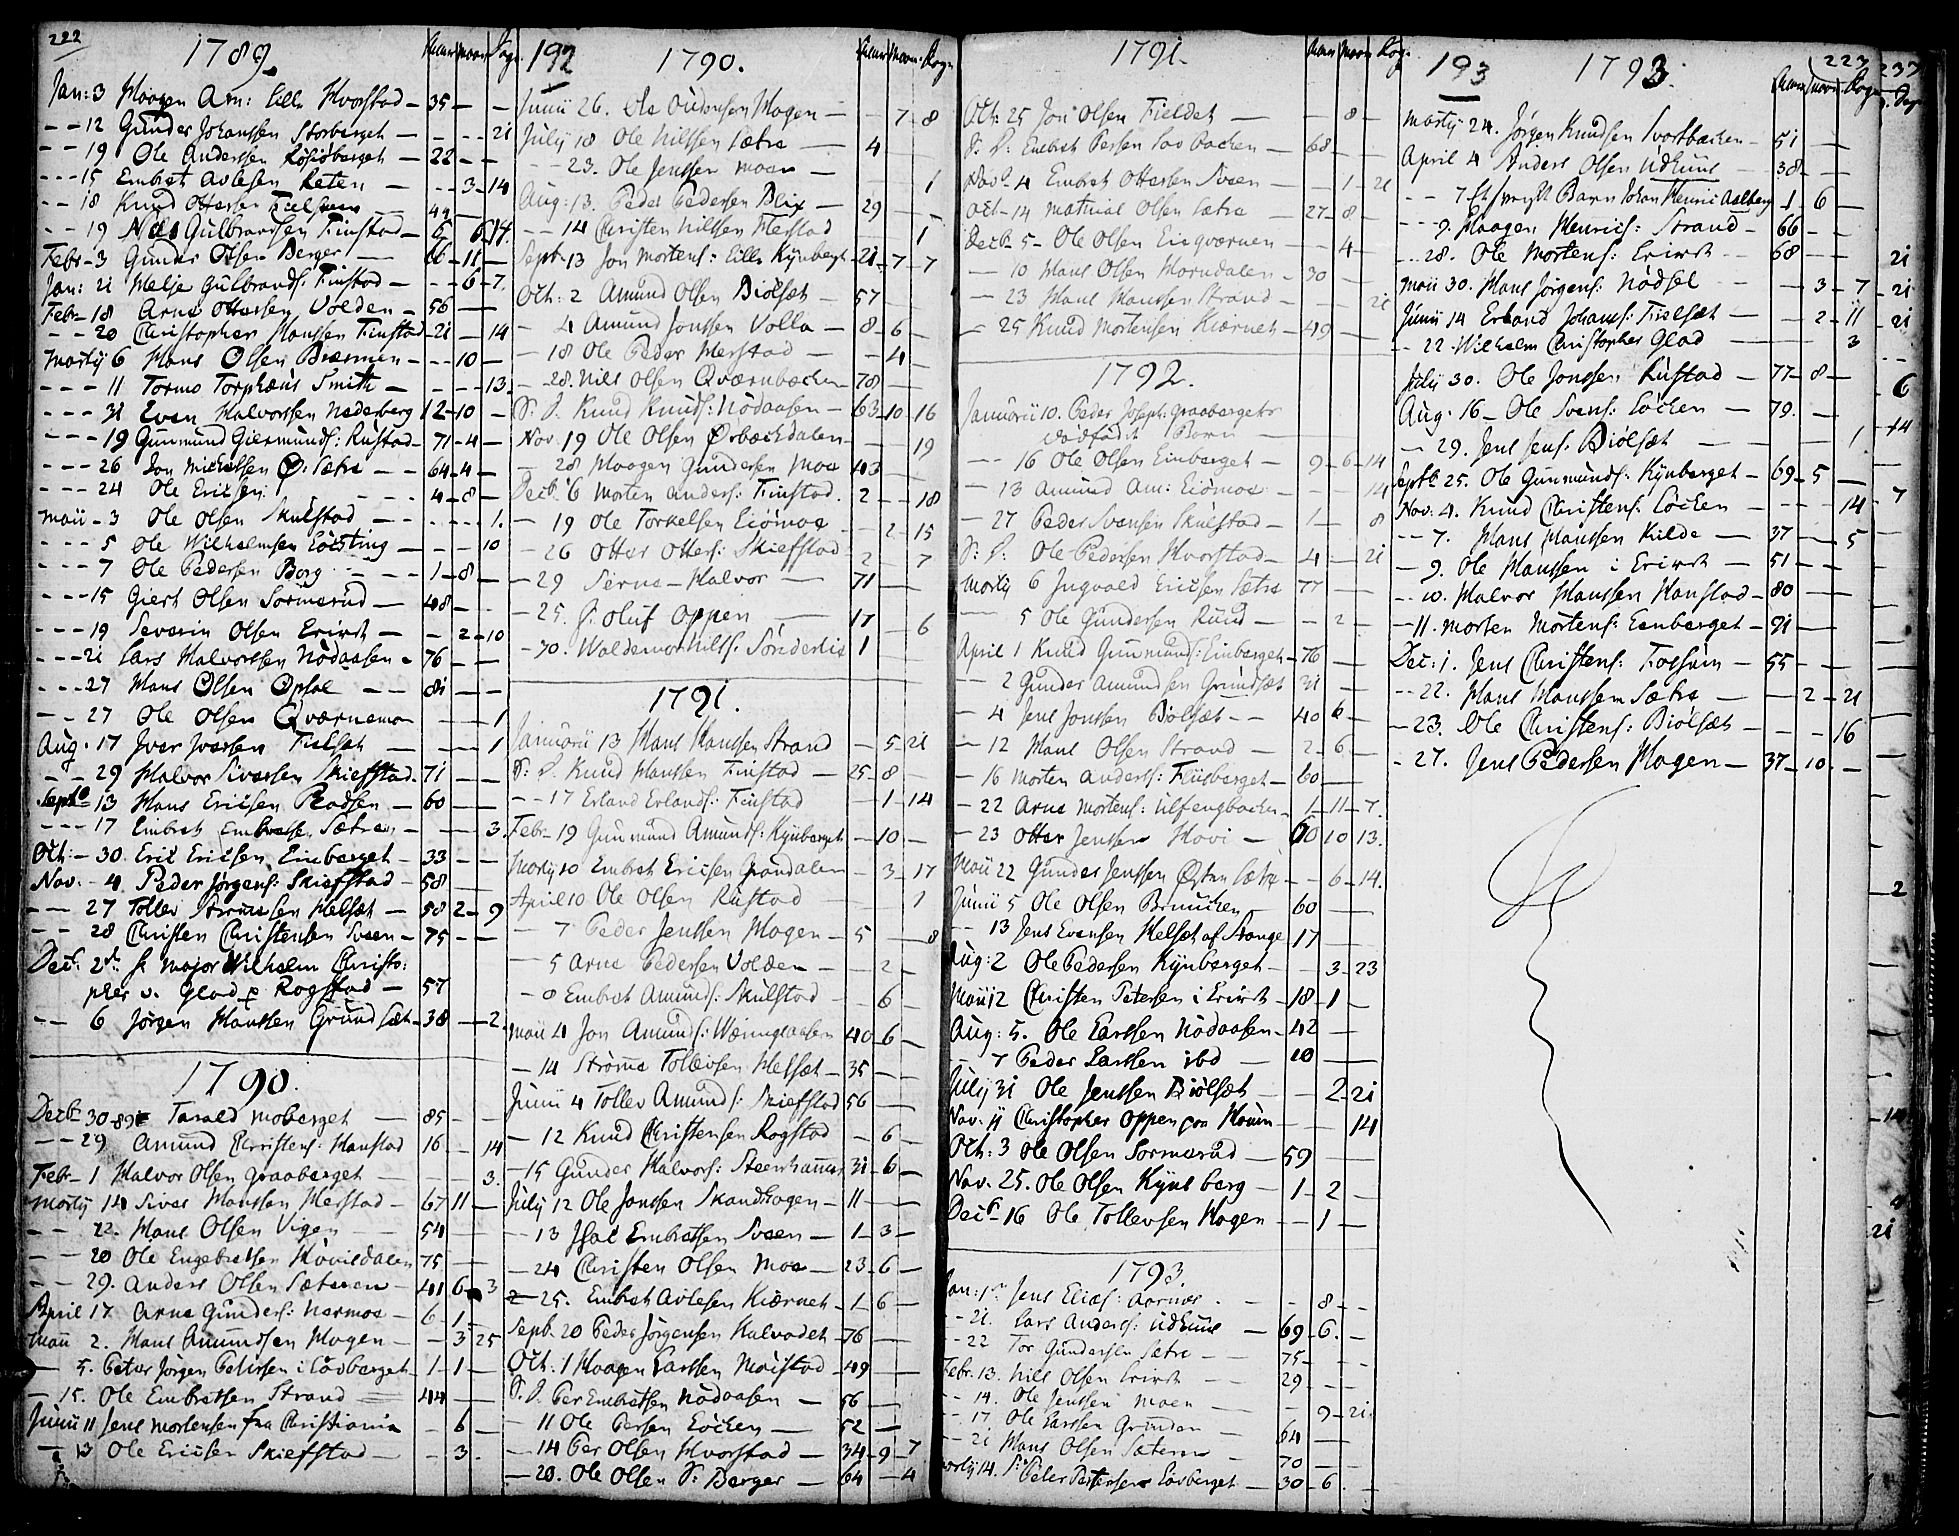 222
1789.
Jan: 3 Haagen Am: Lille Hvorstad - 35 - -
- - 12 Gunder Johanssen Storberget - - - 21
- - 19 Ole Anderssen 22 - -
- - - 15 Embret Avlesen - - 3 - 14
- - 18 Knud Ottersen 44
- - 19 Nils Gulbrandsen Finstad - 6 14.
Febr - 3 Gunder Otters. Berger - 66 - 11 -
Jan: 21 Helje Gulbrands. Finstad - - 6 - 7.
Febr - 18 Arne Ottersen Volden - 56 -
- - 20 Christopher Hanssen Finstad - 21 - 14
Martij 6 Hans Olsen - - 10 -
- - - 11 Tormo Torphæus Smith - - - - 13.
- - - 31 Even Halvorssen Nederberg 12 - 10 -
- - - 19 Gunmund Giermunds: Rustad - 71 - 4 -
- - - 26 Jon Michelsen Ø: Sætre - 64 - 4 -
- - - 24 Ole Ericsen - 4 - 8 -
Maii - 3 Ole Olsen Skulstad - - - 1.
- - - 5 Ole Wilhelmsen - - 10
- - - 7 Ole Pedersen Berg - - - 1 - 8 -
- - - 15 Giert Olsen Sormerud - 48 -
- - - 19 Severin Olsen Erirst - - 2 - 10
- - - 21 Lars Halvorssen Nödaasen - 76 -
- - - 27 Hans Olsen Opsal - - 81 - -
- - 27 Ole Olsen Qværnemoe - - 1
Aug. 17 Iver Iversen Fielset - - 1
- - 29 Halvor Siversen Skiefstad. 71 - -
Septb 13 Hans Ericsen - 60 - -
- - - 17 Embret Embretsen Sætre - - 3.
Oct: - 30. Eric Ericsen Einberget - 33 - -
Nov. - 4. Peder Jørgens: Skiefstad - 58 -
- - 27 Tollev Strömsen Helsæt - 58 2 - 9
- - 28 Christen Christensen Sveen - 75 - -
Dec. 2 Major Wilhelm Christo:
pher v. Glad p Rogstad - 57
- - 6 Jörgen Hanssen Grundsæt - 38 - 2.
1790.
Decbr 30 89 Tarald Moberget - 85 -
- - 29 Amund Christens: Hanstad 16 - 14
Febr - 1 Halvor Olsen Graaberget - - 3.
Martij 14 Siver Hanssen Herstad - 67 11 -
- - 22. Hans Olsen Vigen - 54
- - 20 Ole Engebretsen Hovisdalen 75 -
- - 29. Anders Olsen Sæteren - 41 6 - 3
April 17 Arne Gunders: Nermoe - 6 - 1.
Maii 2. Hans Amundsen Hagen - - 3. 25
- 5. Peter Jörgen Petersen i Lövberget - 1 - 1 -
- 15. Ole Embretsen Strand 44 -
Junii 11 Jens Mortensen fra Christiania - 6 -
Ole Ericsen Skiefstad - - 3.
192 1790.
Junii 26. Ole Hagen - 7 - 8
July 18 Ole Nilssen Sætre - 4
- - 23. Ole Jenssen Moen - 1
Aug: 13. Peder Pedersen Blix - 29 -
- - 14 Christen Nilssen - 1
Septb 13 Jon Mortens: Lille Kynbergt - 21 - 7 - 7
Oct: 2 Amund Olsen Biölsæt - 57 -
- 4 Amund Jonssen Volla - 8 - 6 -
- 18 Ole Peder Herstad - - 4 -
- 28. Nils Olsen Qværnbachen 78 -
S: D. Knud Knuds: Nödaasen - 63 - 10 - 16
Nov. 19 Ole Olsen Ørbechdalen - 19
- 28 Haagen Gundersen Moe 43 -
Decb. 6 Morten Anders: Finstad. 2 - 18
- 19 Ole Torkelsen Eiömoe - 2 - 15
- 26 Otter Otters: Skiefstad 2 - 7
- 29 Halvor - 71 -
- 25. Oluf Oppen - 17 - 6
- 30. Waldemor Nills: 1
1791.
Januarii 13 Hans Hanssen Strand - 5 - 21
S: D. Knud Hanssen Finstad - 25 - 8 -
- - 17 Erland Erlands: Finstad - 1 - 14
Febr - 19 Gunmund Amunds: Kynberget - 10 -
Martij 10 Embret Ericsen Grøndalen - 3 - 17
April 10 Ole Olsen Rustad - 1
- 7 Peder Jenssen Hagen - 5 - 8
- 5 Arne Pedersen Volden - 2 -
- 8 Embret Amunds: Skulstad - 6 -
Maii 4 Jon Amunds: 40 - 6 -
- 14 Ströms Tollevsen Helsæt - 35 -
Junii 4 Tollev Amunds: Skiefstad 56 -
- 12 Knud Christensen Rogstad - 6 -
- 15 Gunder Halvors: Steenhammer 31 - 6 -
July 12 Ole Jonssen Skandhagen - 11 -
- 13 Isac Embretsen Sveen - 1 - 3 -
- 24 Christen Olsen Moe - 23 - 6 -
- 25. Embret Avlesen Kiærnet - 1 - 6 -
Sept. 20 Peder Jörgensen Kalvadet - 76 -
Oct: 1 Haagen Larssen Moistad - 49 -
S: D. Per Embretsen Nödaasen - 56 -
- 11 Ole Persen Löchen - 52 -
- 14 Per Olsen Hvorstad - 34 - 9 - 7
- 20. Ole Olsen S: Berger - 64 - 4
1791.
Oct: 25 Jon Olsen Fieldet - 8 -
S: D: Embret Persen Sorbachen - 68 -
Nov. 4 Embret Ottersen Sveen - 1 - 21
Oct - 14 Mathias Olsen Sætre - 27 - 8 -
Decbr 5 - Ole Olsen Engværnen - 4 -
- 10 Hans Olsen Horndalen - 30 -
- 23 Hans Hanssen Strand - 21
- 25 Knud Mortensen Kiærnet - 49 -
1792.
Januarii 10. Peder Joseph: Graabergets
dödfödt Barn
- - 16 Ole Olsen Einberget - 9 - 6 - 14
- 13 Amund Am: Eiömoe - 14
- 27 Peder Svensen Skulstad - 1 - 8
S: D: Ole Pedersen Hvorstad - 4 - 21
Martij 6 Ingvald Ericsen Sætre 77 -
- 5 Ole Gundersen Ruud - 2 -
April 1 Knud Gunmunds: Einberget - 76 -
- 2 Gunder Amundsen Grundsæt 31 -
- 4 Jens Jonssen Biölsæt - 40 6 -
- 12 Hans Olsen Strand - 2 - 6 -
- 16 Morten Anderss: - 60 -
- 22 Arne Mortens: Ulfengbachen - 1 - 11 - 7.
- 23 Otter Jenssen Hovi - 60 10 13.
Maii 22 Gunder Jenssen Østen Sætre - - 6 - 14.
Junii 5 Ole Olsen - 60 -
- - 13 Jens Evensen Helset af Stange 17 -
Aug: 2 Ole Pedersen Kynberget - - 3 - 23
Maii 12 Christen Petersen i Erirst - 18 - 1 -
Aug: 5. Ole Larssen Nödaasen - 42 -
- 7 Peder Larssen ibd - 20 -
July 31 Ole Jenssen Biölset - - 2 - 21
Nov. 11 Christopher Oppen - - 14
Oct: 3 Ole Olsen Sormerud - 59 -
Nov. 25. Ole Olsen Kynsberg - 1 - 2 -
Dec. 16 Ole Tollevsen Hagen - - 1 -
1793.
Jan: 1 Jens Elias: Aarnæs - 8 -
- - 21. Lars Anders: Udhuus - 69 - 6. -
- - 22 Tor Gundersen Sætre - 75 -
Febr. 13. Nils Olsen Erirst - 29 -
- - 14. Ole Jenssen i Moen - 9 - 21.
- - 17. Ole Larssen Grinden - 64 -
- - 21 Hans Olsen Sæteren - 70 -
Martij 14. Peter Petersen Lövberget - 30 - 6. -
193 1793.
223
Martij 24. Jørgen Knudsen Svartbachen - 51 -
April 4 Anders Olsen Udhuus - 38 -
- - 7 Barn Johan Henric Aalberg - 1 - 6 -
- - 9. Haagen Henrics: Strand - 66 -
- - 28. Ole Mortens: Erirst - 68 -
Maii 30. Hans Jörgens: Nödsel - 3 - 7
Junii 14 Erland Johans: Fielsæt - 2 - 11
- - 22. Wilhelm Christopher Glad - 3
July 30. Ole Jonssen Rustad - 77 - 8 -
Aug. 16 - Ole Svens: Löchen - 79.
- 29. Jens Jens. Biölsæt - - 1
Septbr 25. Ole Gunmunds: Kynberget - 69 - 5 -
Nov. 4. Knud Christens: Löchen - 14
- - 7. Hans Hanssen Kilde - 37 - 5
- 9. Ole Hanssen i Erirst - 51 -
- - 10. Halvor Hanssen Hanstad - 80 -
- 11. Morten Mortens: Einberget - 91 -
Dec: 1. Jens Christens: Fossum - 55 -
- - 22. Hans Hanssen Sætre - 2 - 21
- 23. Ole Christens: Biölsæt - - 16
- 27. Jens Pedersen Hagen - 37 - 10. -